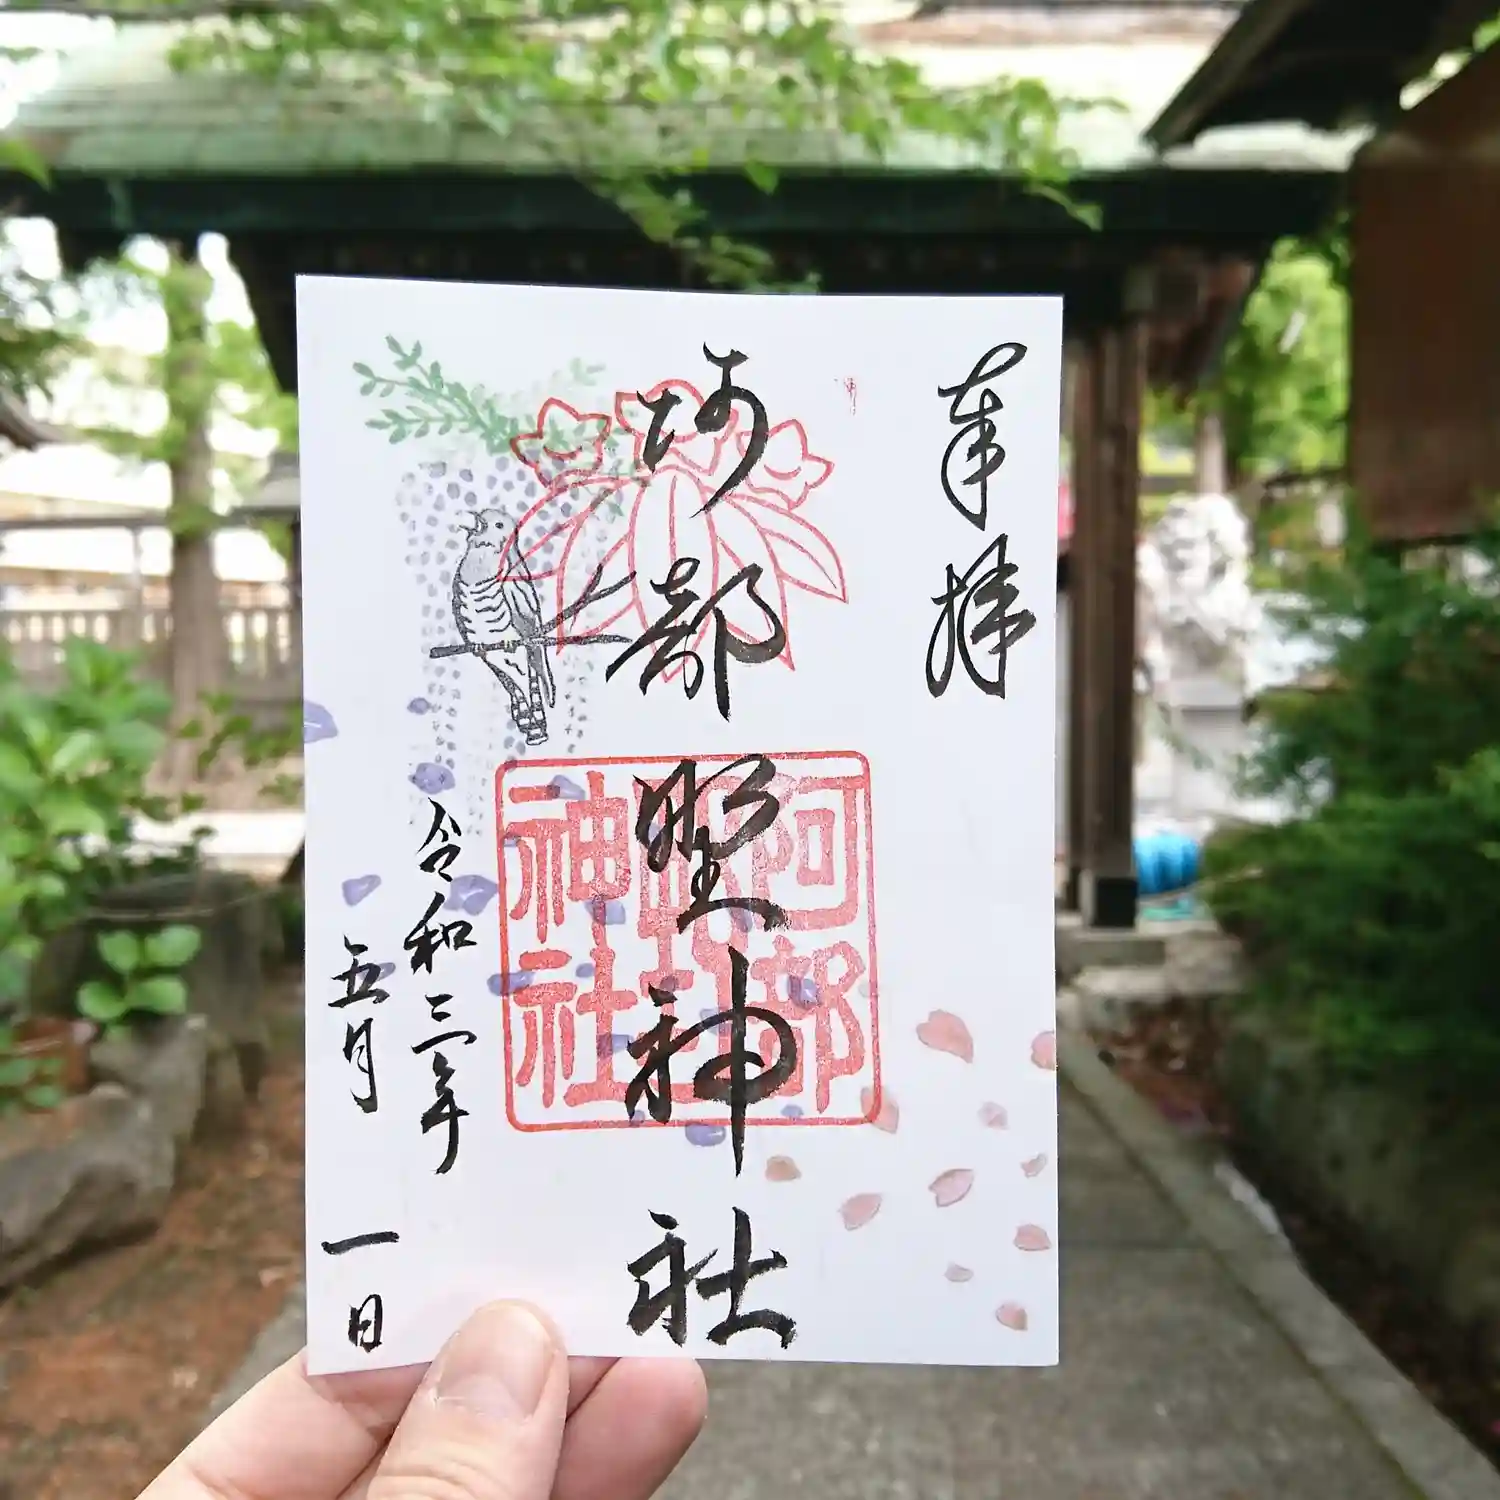 奉拝
阿部野神社
阿部野神社
令和三年
五月一日